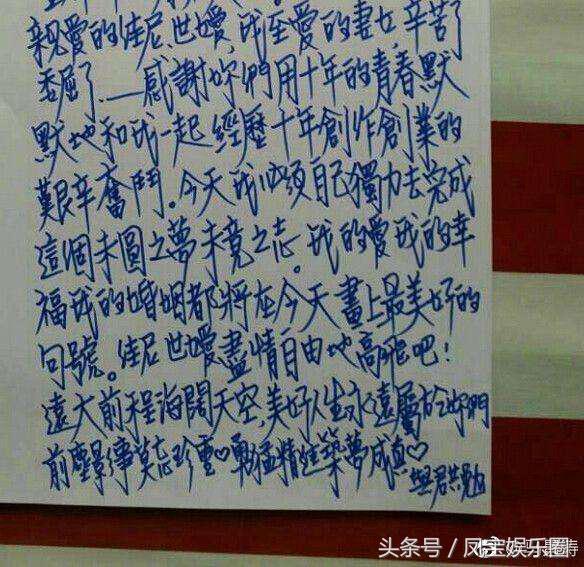 親愛的佳尼.世嬡,我至愛的妻女,辛苦了
委屈了.——感謝妳們用十年的青春默
默地和我一起經歷十年創作創業的
艱辛奮鬥。今天我必須自己獨力去完成
這個未圓之夢未竟之志。我的愛我的幸
福我的婚姻都將在今天畫上最美好的
句號。佳尼世嬡盡情自由地高飛吧!
遠大前程海闊天空,美好人生永遠屬於妳們
前塵影事莫忘珍重♡勇猛精進築夢成真♡
與君共勉
头条号/凤宝娱乐圈